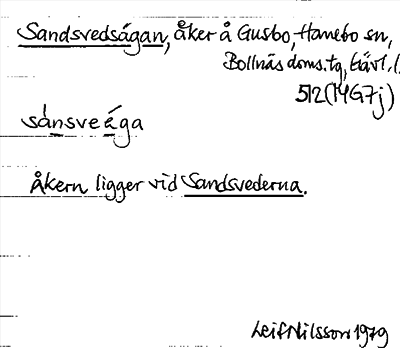 Sandsvedsågan, åker å Gusbo, Hanebo sn,
Bollnäs doms.tg, Gävl. l.
512 (14G7j)
sánsveága
Åkern ligger vid Sandsvederna.
Leif Nilsson 1979